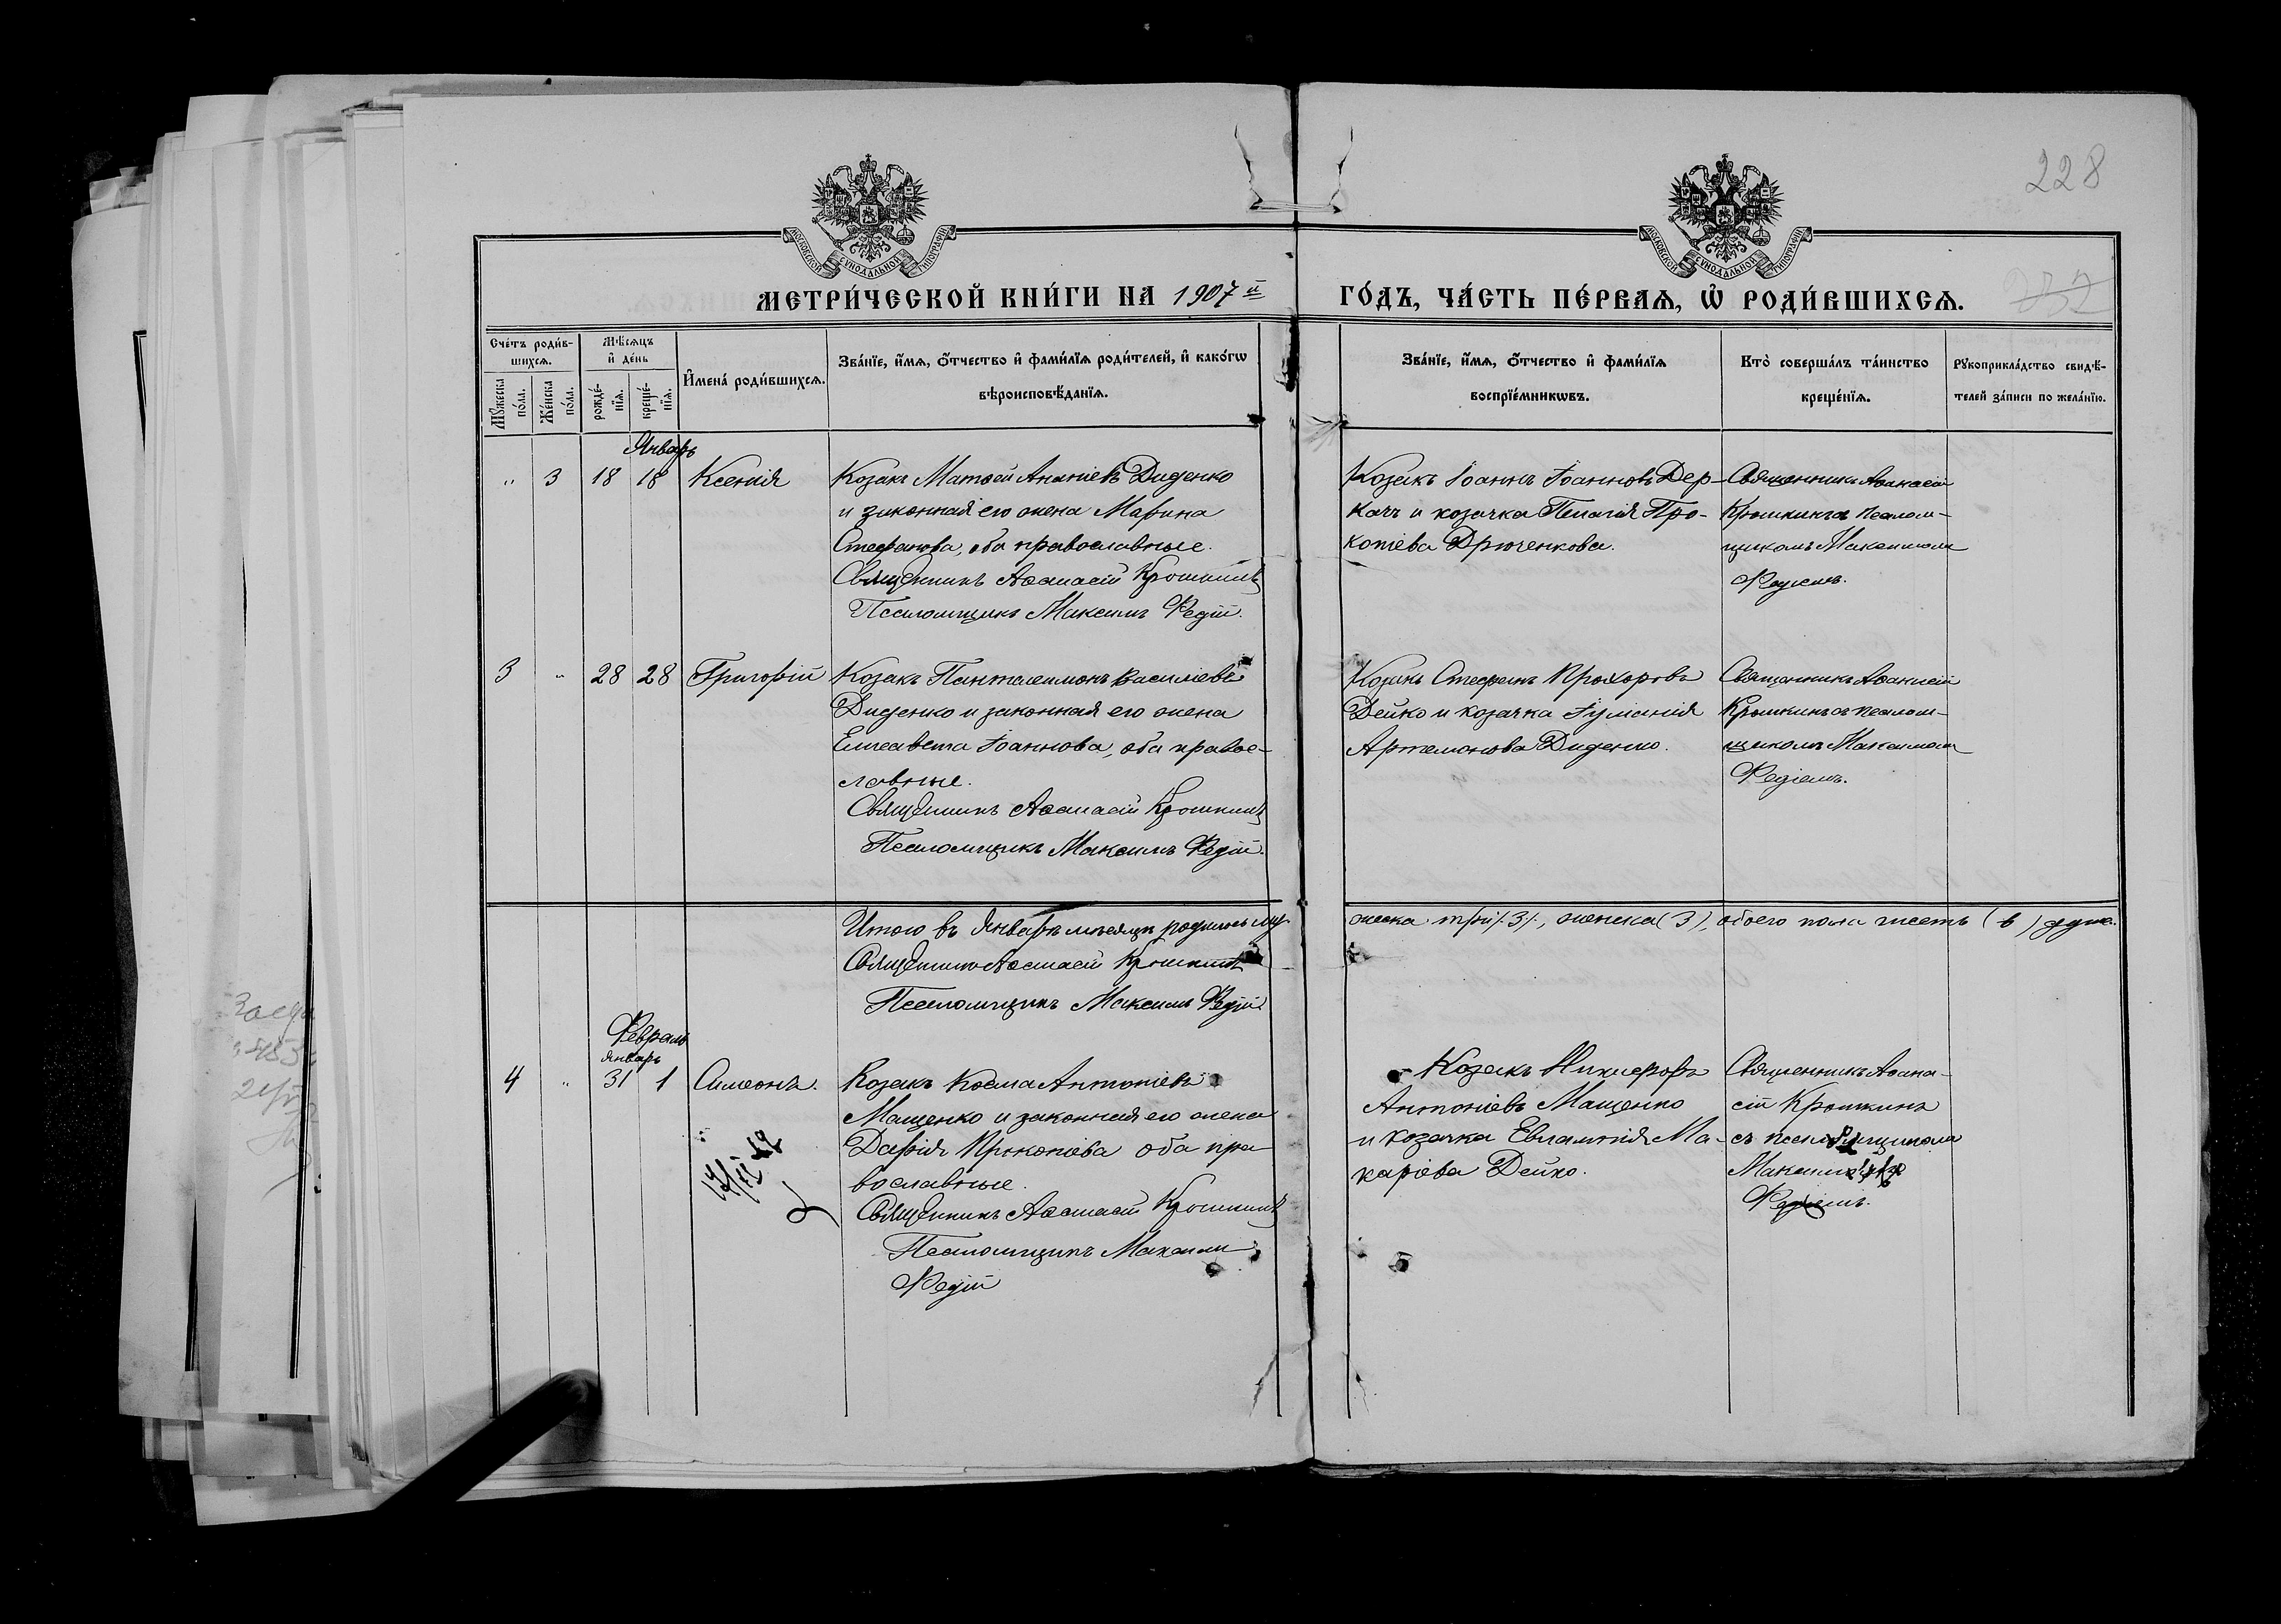 228
МОСКОВСКОЙ СѴНОДАЛЬНОЙ ТИПОГРАФІИ
МОСКОВСКОЙ СѴНОДАЛЬНОЙ ТИПОГРАФІИ
МЕТРИ́ЧЕСКОЙ КНИ́ГИ НА 1907й
ГО́ДЪ, ЧА́СТЬ ПЕ́РВАѦ, Ѡ҆ РОДИ́ВШИХСѦ.
Сче́тъ роди́в-
шихсѧ.
Мꙋ́жеска по́ла.
Же́нска по́ла.
Мѣ́сѧцъ
и҆ де́нь
рожде́-нїѧ.
креще́-нїѧ.
И҆мена́ роди́вшихсѧ.
Зва́нїе, и҆́мѧ, ѻ҆́тчество и҆ фами́лїѧ роди́телей, и҆ како́гѡ
вѣроисповѣ́данїѧ.
Зва́нїе, и҆́мѧ, ѻ҆́тчество и҆ фами́лїѧ
воспрїе́мникѡвъ.
Кто̀ соверша́лъ та́инство
креще́нїѧ.
Рꙋкоприкла́дство свидѣ́-
телей за́писи по жела́нїю.
Январь
" 3 18 18 Ксенія
Козакъ Матѳей Ананіевъ Диденко
и законная его жена Марина
Стефанова, оба православные.
Священникъ Аѳанасій Крошкинъ
Псаломщикъ Максимъ Редій.
Козакъ Іоаннъ Іоанновъ Дер-
качъ и козачка Пелагія Про-
копіева Дрюченкова.
Священникъ Аѳанасій
Крошкинъ съ псалом-
щикомъ Максимомъ
Редіемъ.
3 " 28 28 Григорій
Козакъ Пантелеимонъ Василіевъ
Диденко и законная его жена
Елисавета Іоаннова, оба право-
славные.
Священникъ Аѳанасій Крошкинъ
Псаломщикъ Максимъ Редій.
Козакъ Стефанъ Прохоровъ
Дейко и козачка Іуліанія
Артемонова Диденко.
Священникъ Аѳанасій
Крошкинъ съ псалом-
щикомъ Максимомъ
Редіемъ.
Итого въ Январѣ мѣсяцѣ родилось му-
жеска три (3), женска (3), обоего пола шесть (6) душъ.
Священникъ Аѳанасій Крошкинъ
Псаломщикъ Максимъ Редій
Февраль
январь
4 " 31 1 Симеонъ.
Козакъ Косма Антоніевъ
Мащенко и законная его жена
Дарія Прокопіева оба пра-
вославные.
Священникъ Аѳанасій Крошкинъ
Псаломщикъ Максимъ
Редій
Козакъ Никифоръ
Антоніевъ Мащенко
и козачка Евлампія Ма-
каріева Дейко.
Священникъ Аѳана-
сій Крошкинъ
съ псаломщикомъ
Максимомъ
Редіемъ.